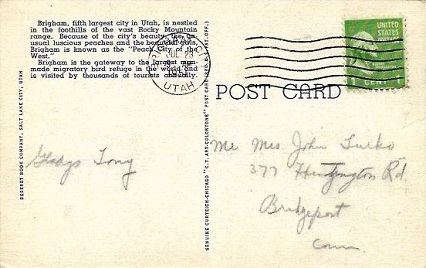 Brigham, fifth largest city in Utah, is nestled
in the foothills of the vast Rocky Mountain
range. Because of the city's beauty, the un-
usual luscious peaches and the beautiful
Brigham is known as the "Peach City of the
West."
Brigham is the gateway to the largest man-
made migratory bird refuge in the world and
is visited by thousands of tourists annually.
DESERET BOOK COMPANY, SALT LAKE CITY, UTAH
Gladys Tony
GENUINE CURTEICH-CHICAGO "C.T. ART-COLORTONE" POST CARD
UTAH
UNITED
STATES
1
POST CARD
Mrs John Turko
377 Huntington Rd.
Bridgeport
Conn